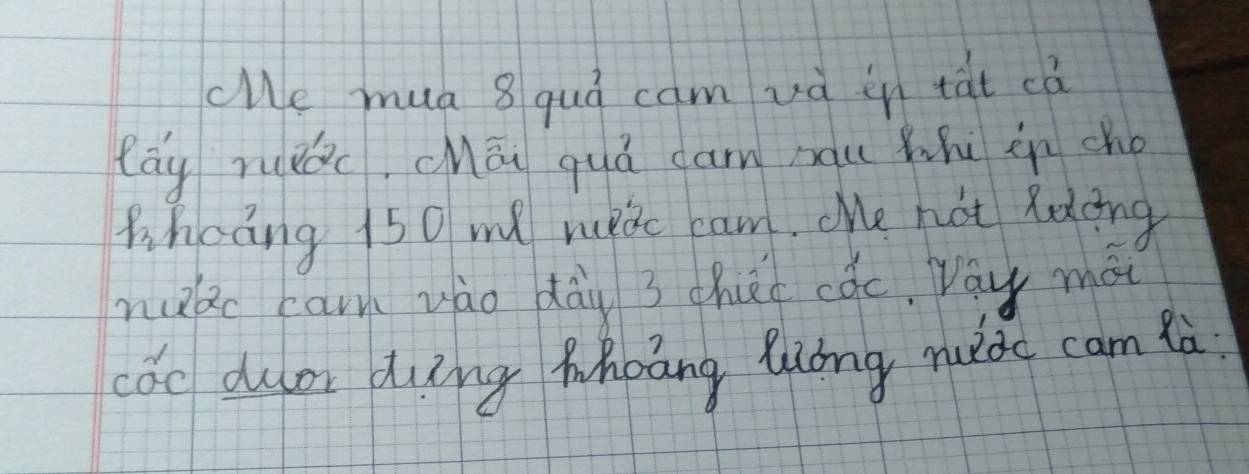 Mẹ mua 8 quả cam và ép tất cả
lấy nước. Mỗi quả cam sau khi ép cho
khoảng 150 ml nước cam. Mẹ rót lượng
nước cam vào đầy 3 chiếc cốc. Vậy mỗi
cốc được đựng khoảng lượng nước cam là: